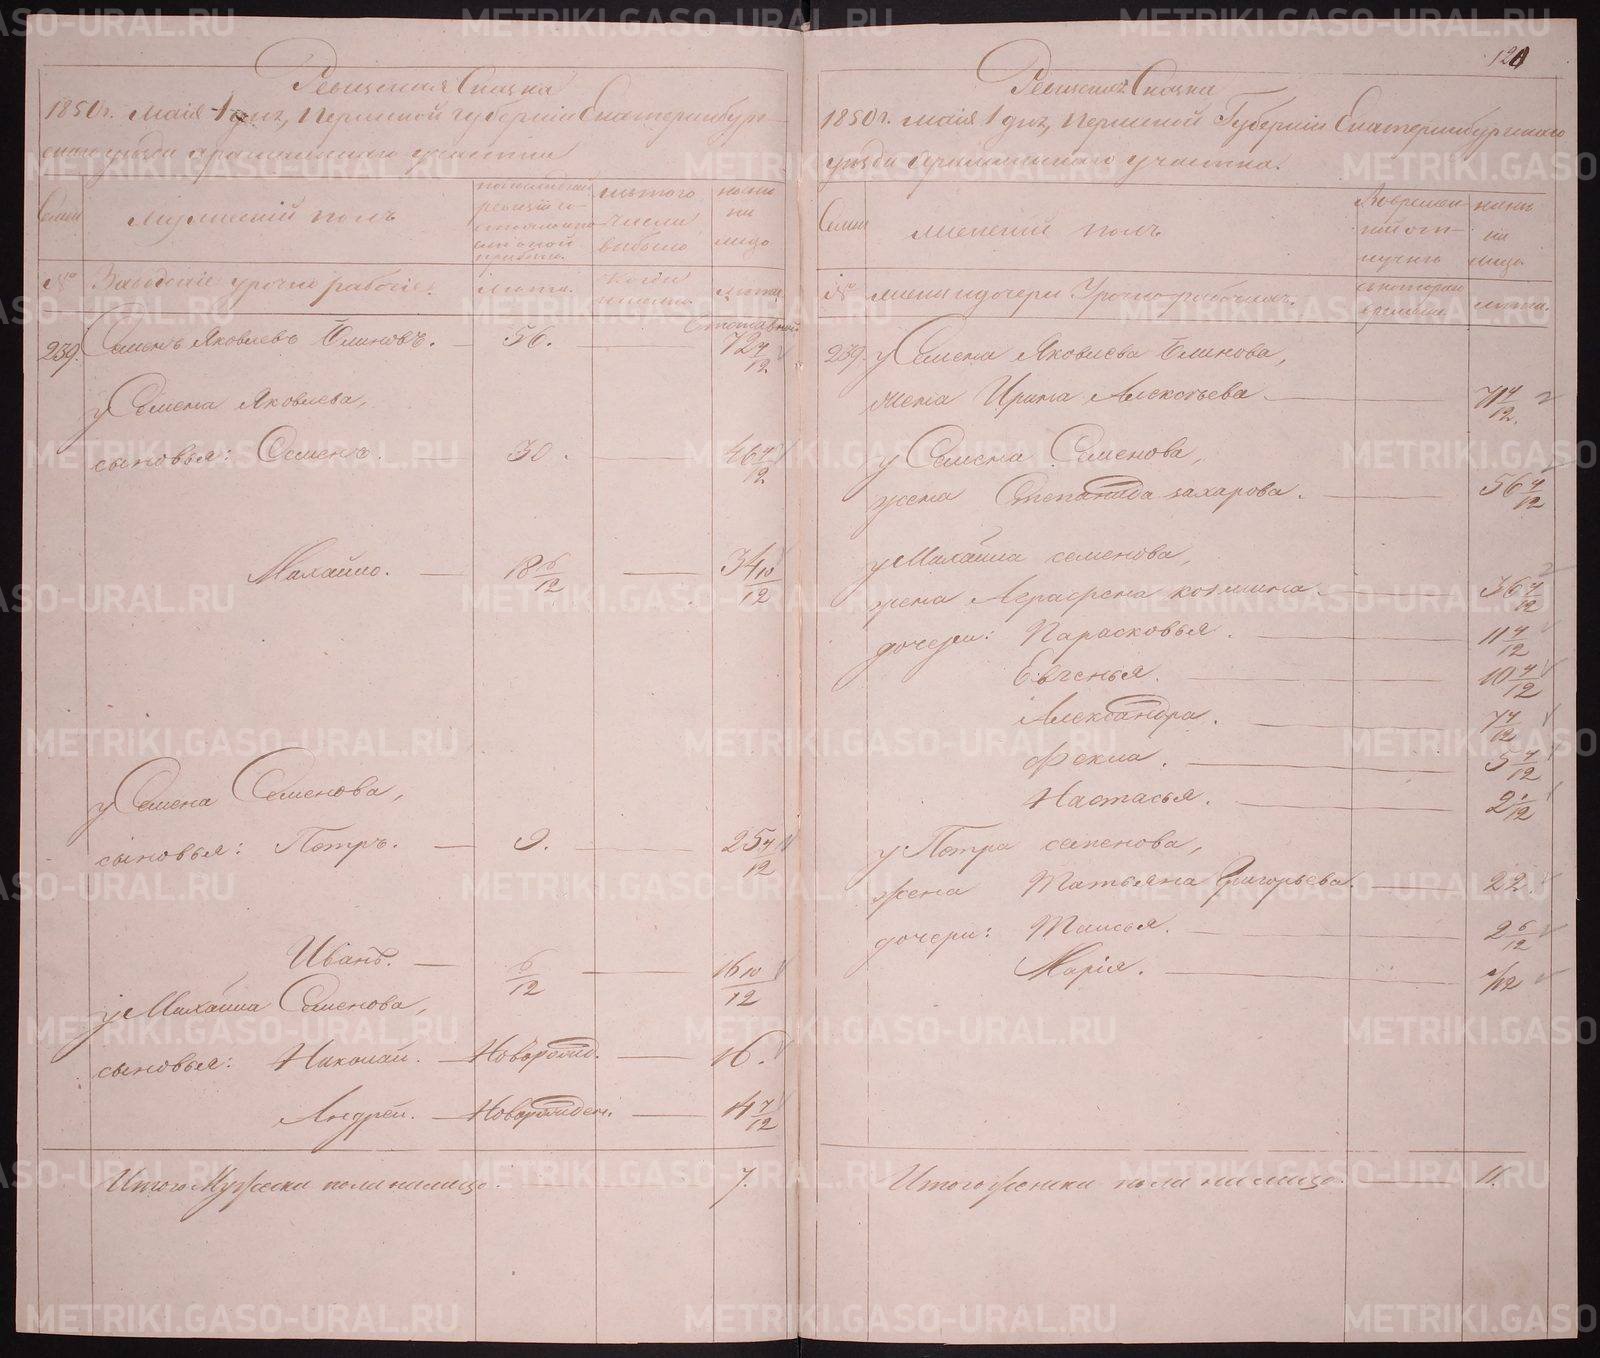 Ревизская Сказка
1850 г. маія 1 дня, Пермской губерніи Екатеринбург-
скаго уезда арамашскаго участка
Семьи
Мужескій полъ
по последней
ревизіи со-
стояло и по-
сле оной
прибыло.
изъ того
числа
выбыло
ныне
на
лицо
№
Заводскіе урочно рабочіе.
лета.
Когда
именно.
лета.
239.
Семенъ Яковлевъ Блиновъ. — 56. — Отставной 72 4/12
у Семена Яковлева,
сыновья: Семенъ. 30. — 46 4/12
Михайло. — 18 6/12 — 34 10/12
у Семена Семенова,
сыновья: Петръ. — 9. — 25 4/12
Иванъ. — 6/12 — 16 10/12
у Михайла Семенова,
сыновья: Николай. — Новорожд. — 16.
Андрей. — Новорожден. — 14 7/12
Итого Мужеска пола на лицо. 7.
120
Ревизская Сказка
1850 г. маія 1 дня, Пермской Губерніи Екатеринбургскаго
уезда участка.
Семьи
женскій полъ
Во времен-
ной от-
лучке
ныне
на
лицо
№
жены и дочери Урочно рабочихъ.
съ котораго
времени
лета.
239.
у Семена Яковлева Блинова,
жена Ирина Алексеева — 71 4/12
у Семена Семенова,
жена Степанида захарова. — 56 4/12
у Михайла семенова,
жена Аграфена козмина — 36 4/12
дочери: Парасковья. — 11 4/12
Евгенья. — 10 4/12
Александра. — 7 4/12
Фекла. — 5 4/12
Настасья. — 2 1/12
у Петра семенова,
жена Татьяна Григорьева. — 22.
дочери: Таисья. — 2 6/12
Марія. — 1/12
Итого женска пола на лицо. — 11.
METRIKI.GASO-URAL.RU